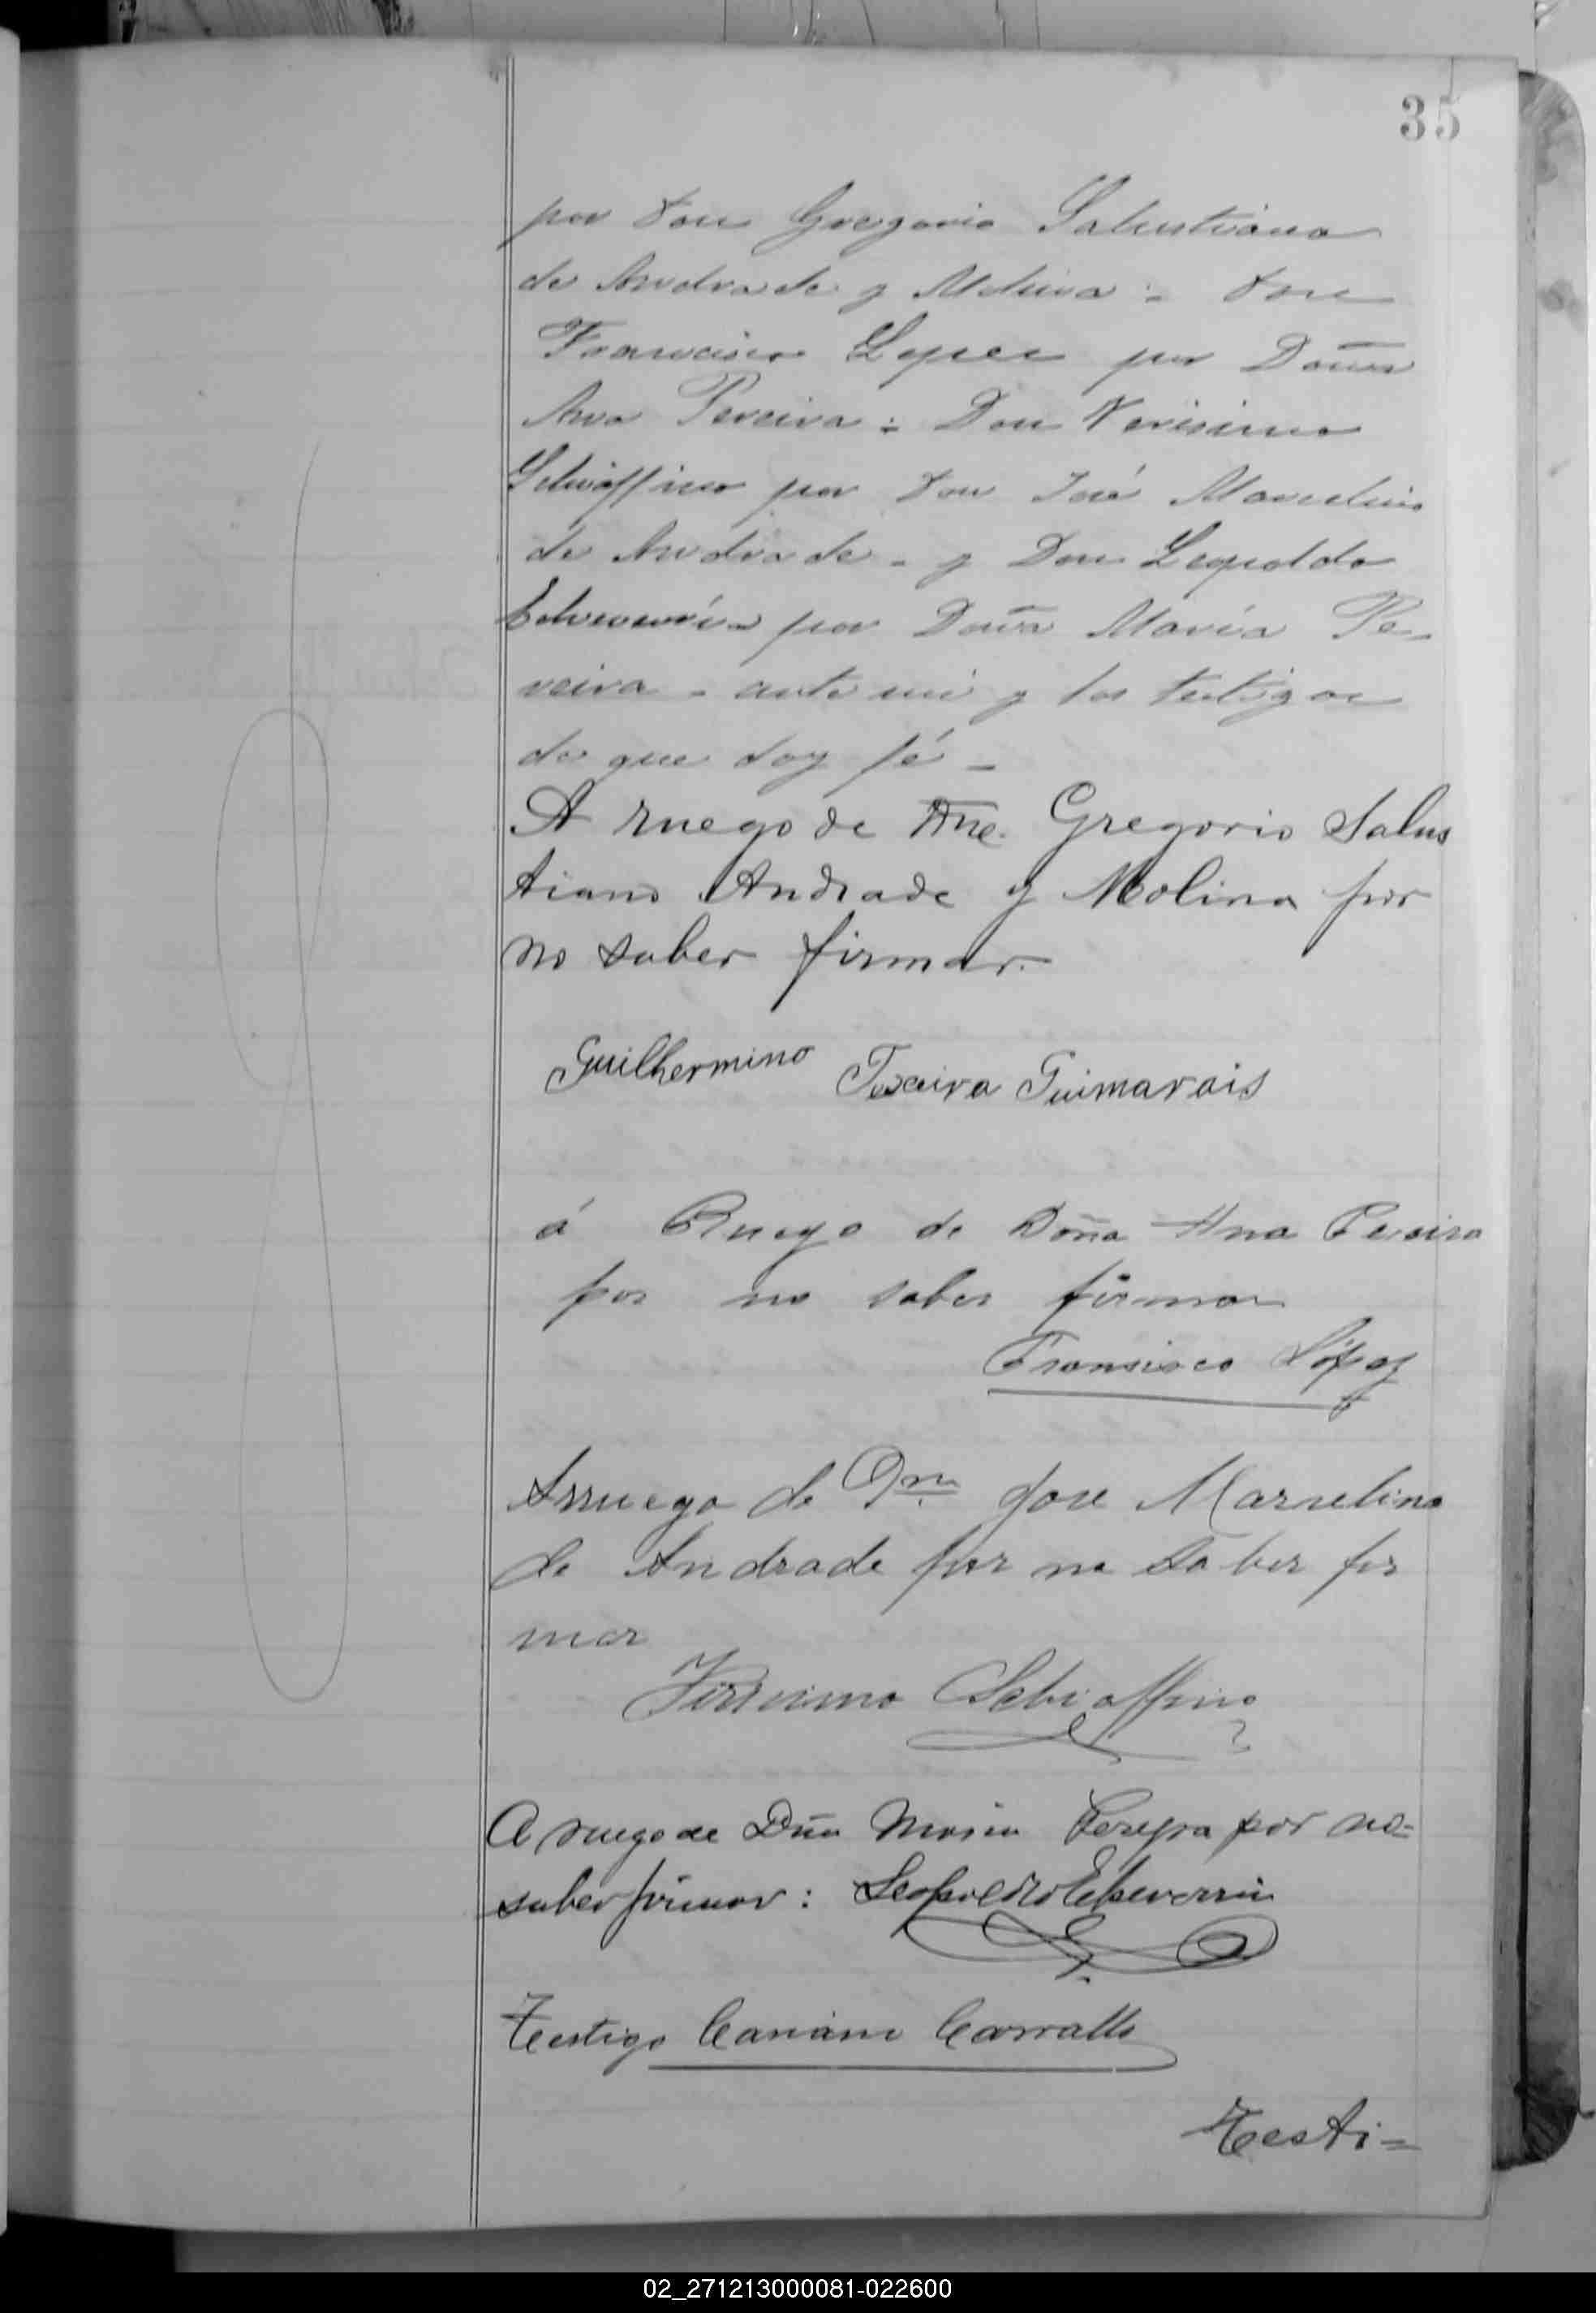 35
por Don Gregorio Salustiano
de Andrade y Molina: Don
Francisco Lopez por Doña
Ana Pereira: Don Verisimo
Schiaffino por Don José Marcelino
de Andrade - y Don Leopoldo
Echeverría por Doña María Pe-
reira - ante mi y los testigos
de que doy fé -
A ruego de Dne. Gregorio Salus
tiano Andrade y Molina por
no saber firmar.
Guilhermino Texeira Guimarais
á Ruego de Doña Ana Pereira
por no saber firmar
Fransisco López
Arruego de Dn Jose Marselino
de Andrade por no saber fir
mar
Virisimo Schiaffino
A ruego de Dña Maria Pereyra por no=
saber firmar: Leopoldo Echeverria
Testigo Carvallo
Testi=
02_271213000081-022600